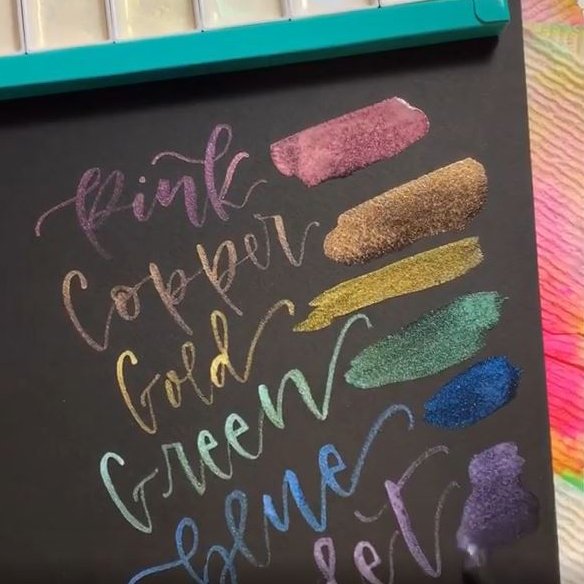 Pink
Copper
Gold
Green
blue